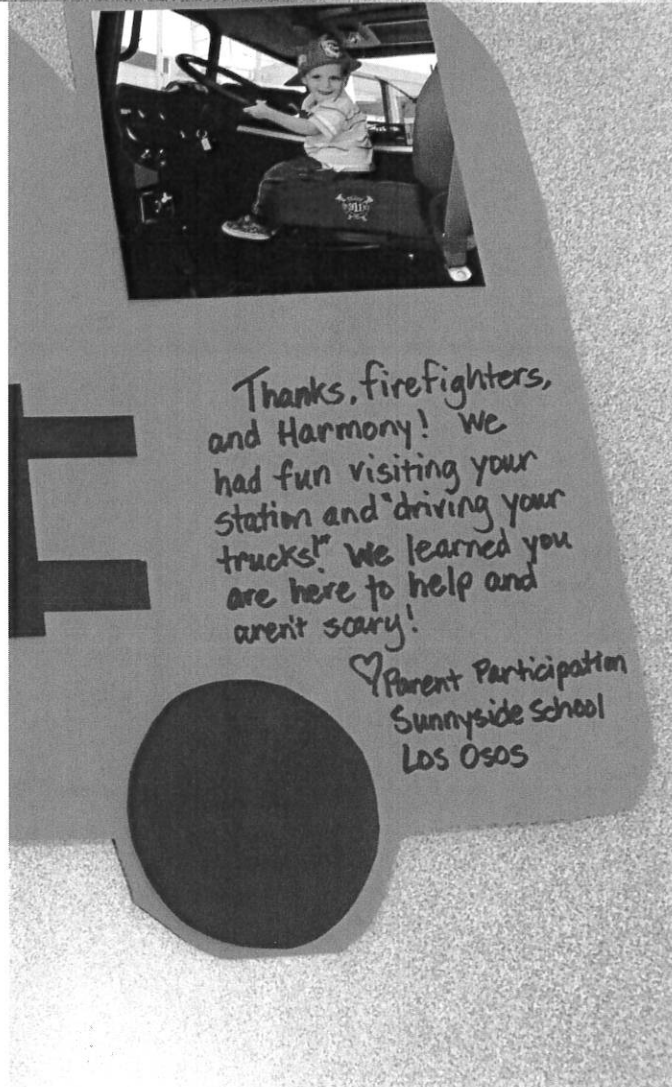 911
Thanks, firefighters,
and Harmony! We
had fun visiting your
station and "driving your
trucks!" We learned you
are here to help and
aren't scary!
♡ Parent Participation
Sunnyside School
Los Osos